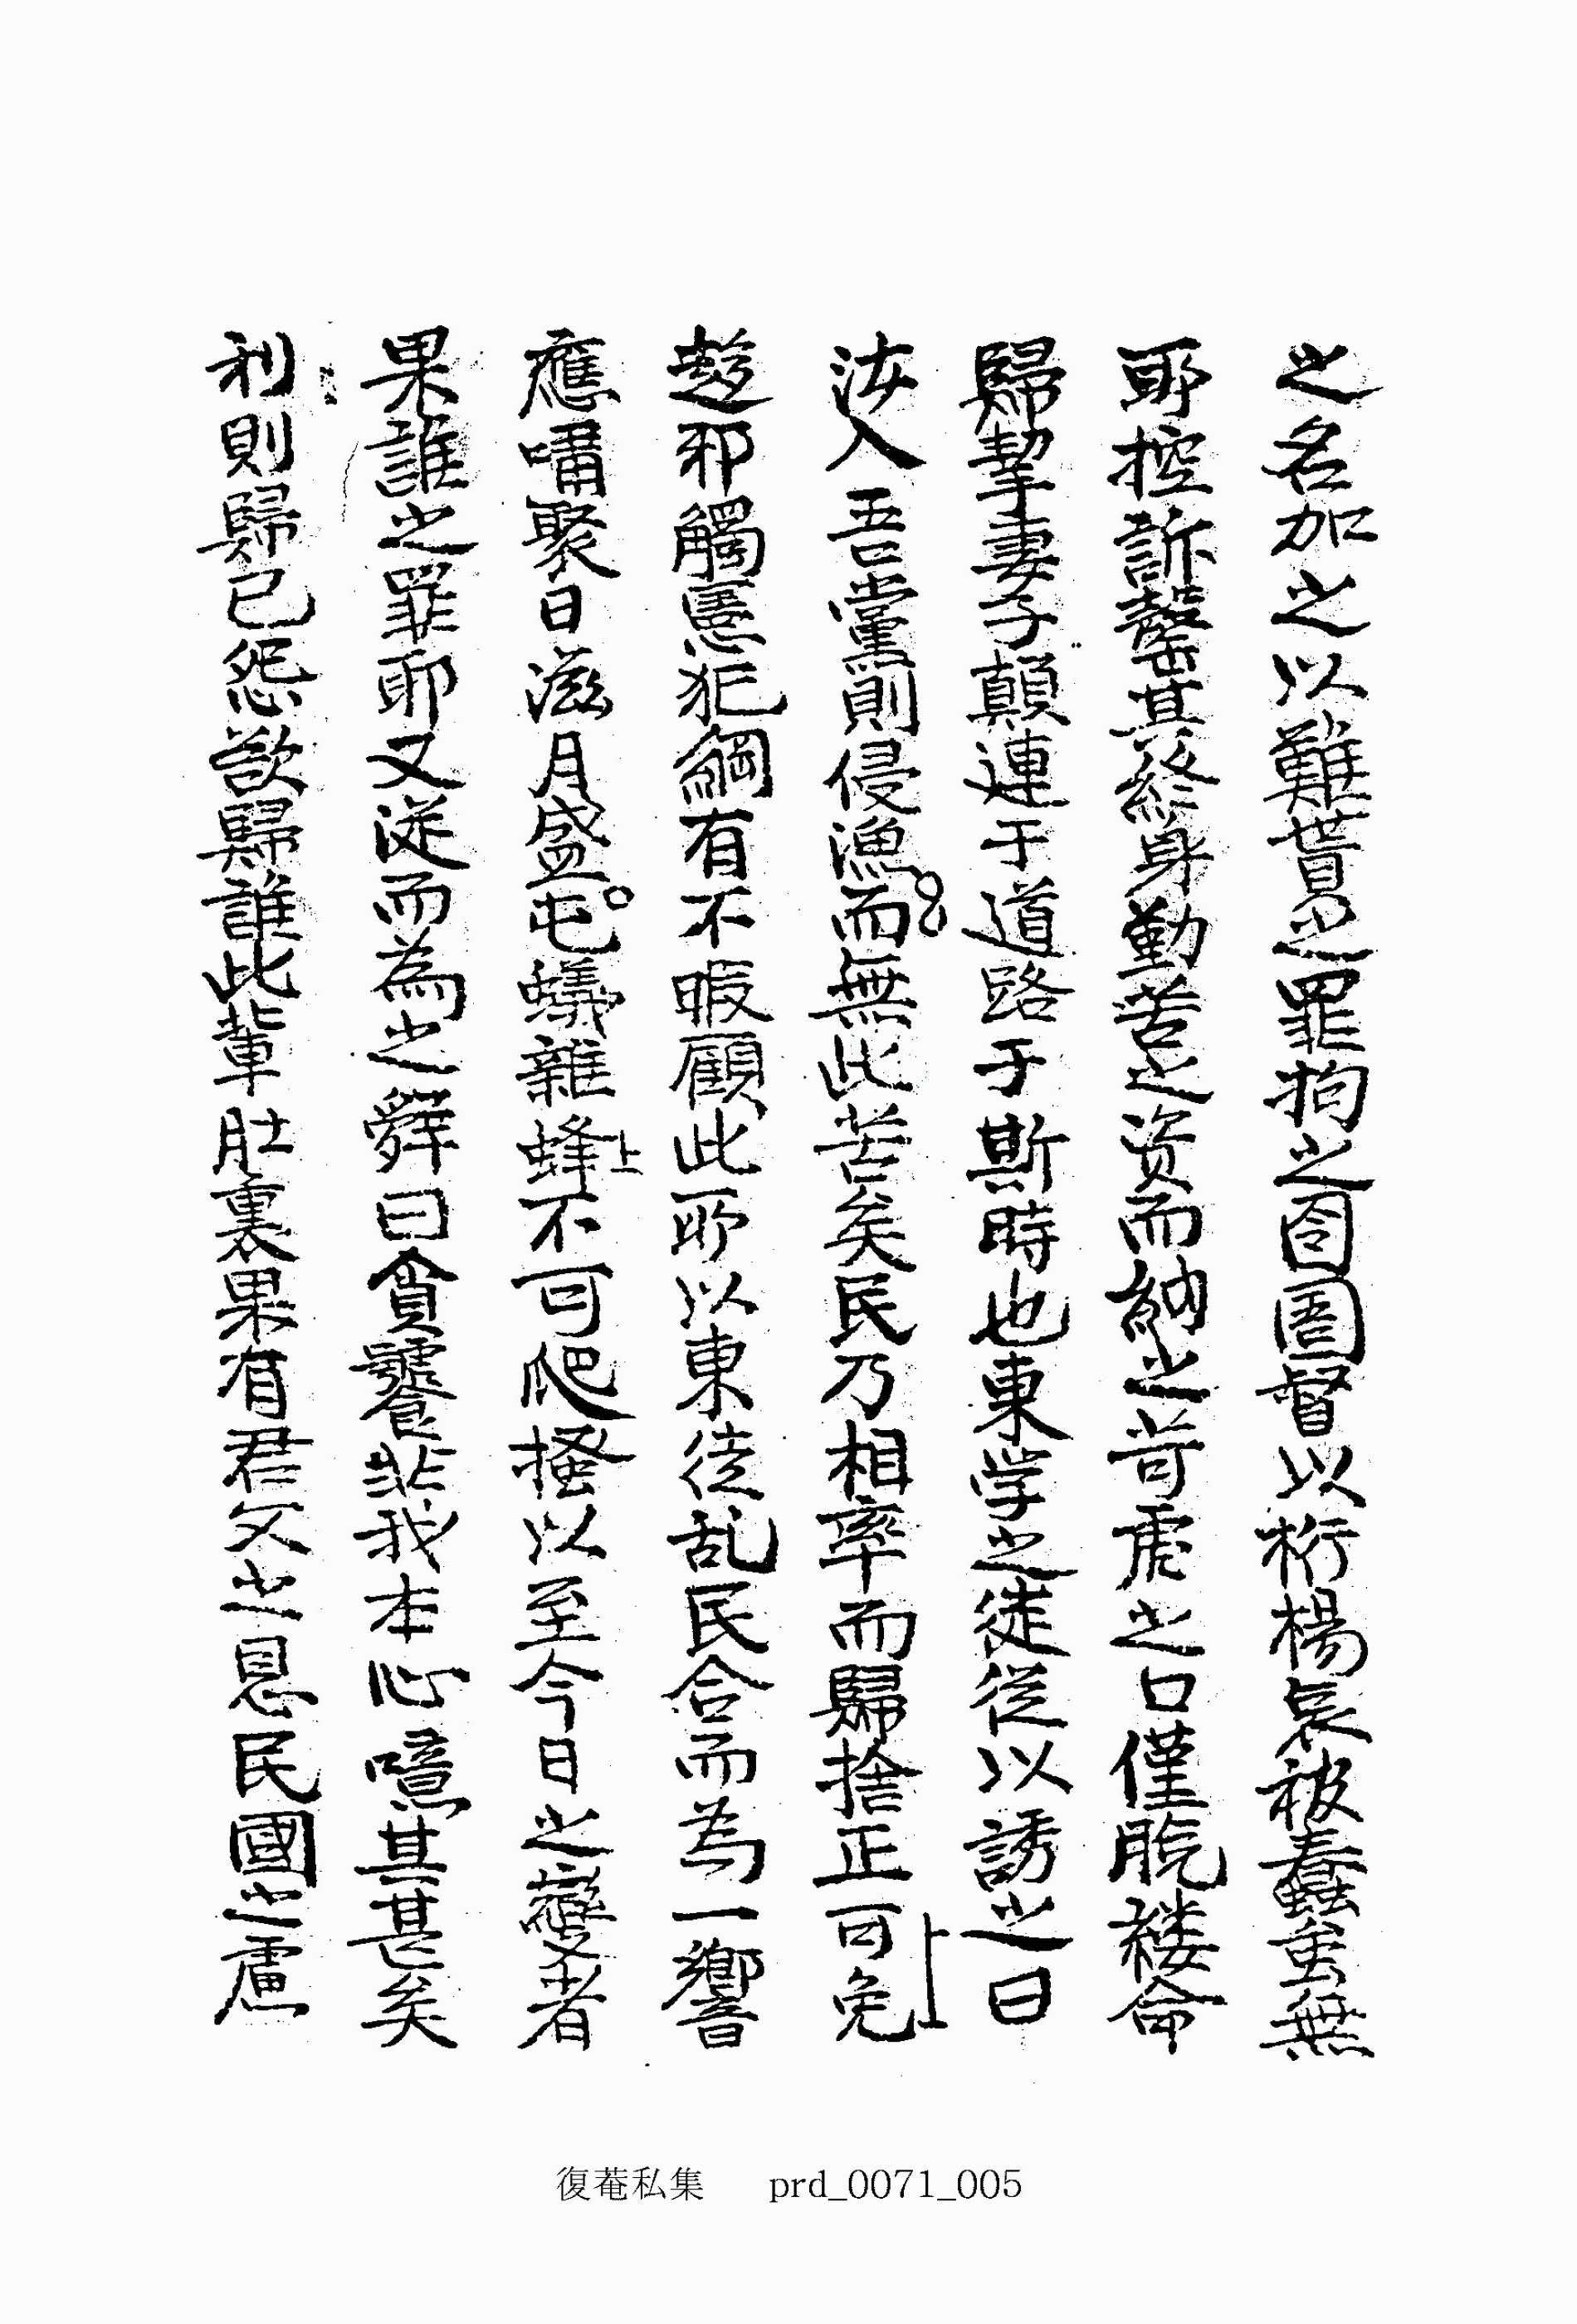 之名加之以難貰之罪拘之囹圄督以桁楊哀被蠢蚩無
耶控訴罄其終身勤苦之資而納之苛虎之口僅脫縷命
歸挈妻子顛連于道路于斯時也東学之徒從以誘之曰
汝入吾黨則侵漁而無此苦矣民乃相率而歸捨正可免
趍邪觸憲犯網有不暇顧此所以東徒乱民合而為一響
應嘯聚日滋月盛屯蟻雜蜂上不可爬搔以至今日之變者
果誰之罪耶又從而為之辭曰貪饕非我本心噫其甚矣
利則歸己怨欲歸誰此輩肚裏果有君父之恩民國之慮
復菴私集 prd_0071_005